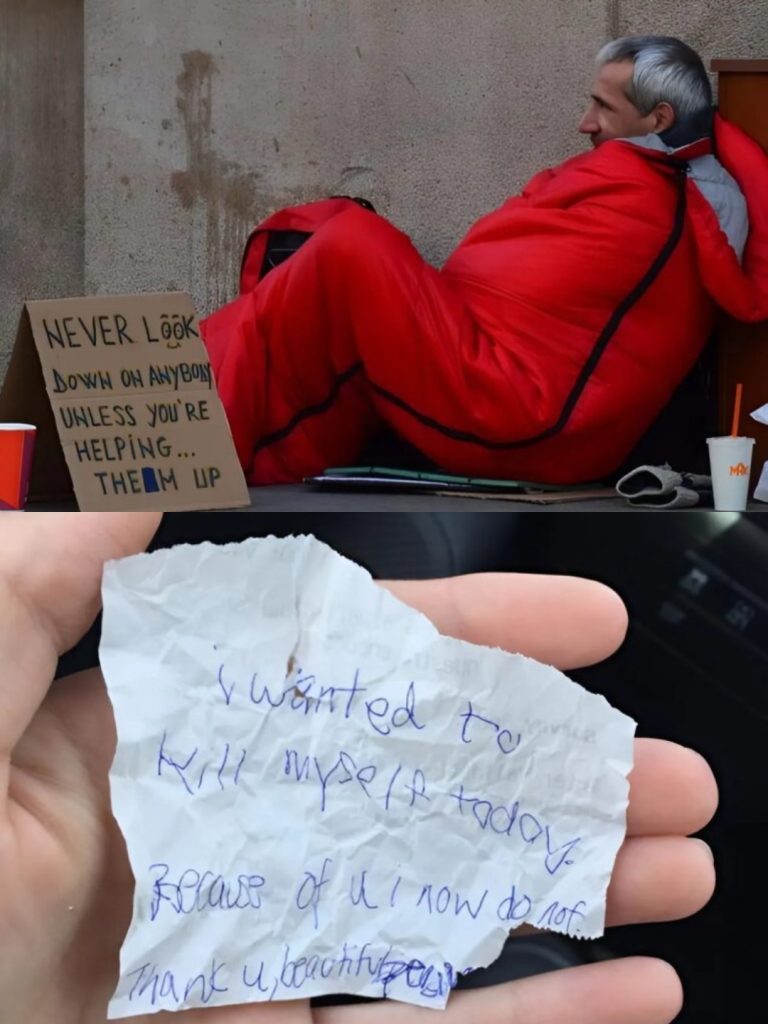 NEVER LOOK
DOWN ON ANYBODY
UNLESS YOU'RE
HELPING...
THEM UP
i wanted to
kill myself today.
Because of u i now do not.
Thank u, beautiful